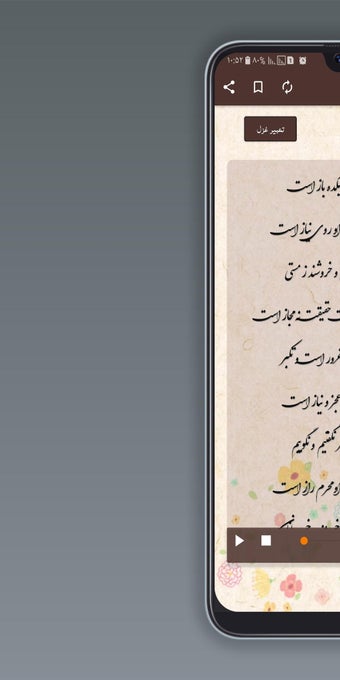 ۱۰:۵۲ ۸۰%
تغییر غزل
یکده باز است
او روی نیاز است
و خروشند ز مستی
ت حقیقت نه مجاز است
غرور است و تکبر
عجز و نیاز است
نگفتیم و نگوییم
او محرم راز است